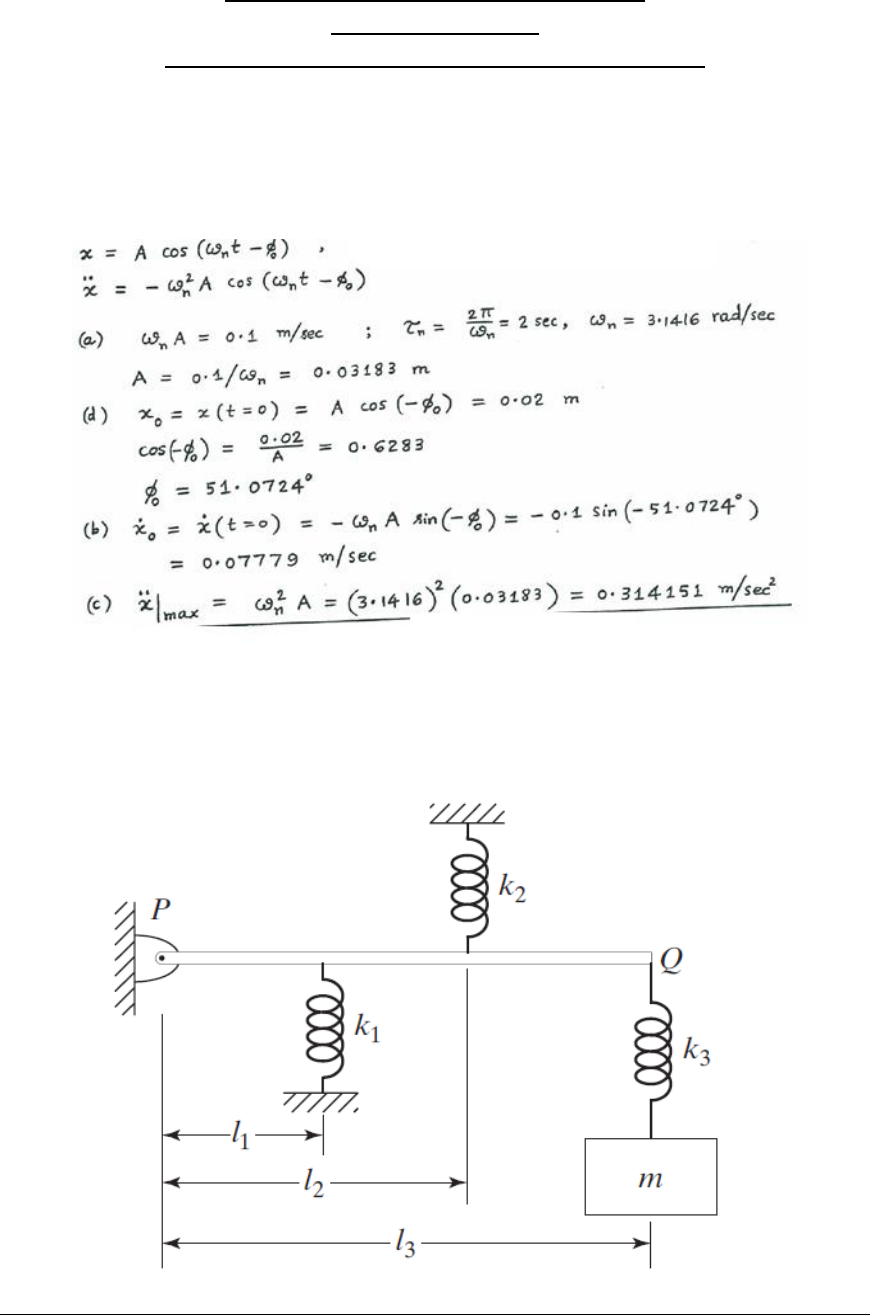 x = A cos (ωₙt − ϕ₀) ,
ẍ = − ωₙ² A cos (ωₙt − ϕ₀)
(a) ωₙ A = 0.1 m/sec ; τₙ = 2π/ωₙ = 2 sec, ωₙ = 3.1416 rad/sec
A = 0.1/ωₙ = 0.03183 m
(d) x₀ = x(t=0) = A cos (−ϕ₀) = 0.02 m
cos(−ϕ₀) = 0.02/A = 0.6283
ϕ₀ = 51.0724°
(b) ẋ₀ = ẋ(t=0) = − ωₙ A sin(−ϕ₀) = − 0.1 sin (−51.0724°)
= 0.07779 m/sec
(c) ẍ|max = ωₙ² A = (3.1416)² (0.03183) = 0.314151 m/sec²
k₂
P
Q
k₁
k₃
l₁
l₂
m
l₃